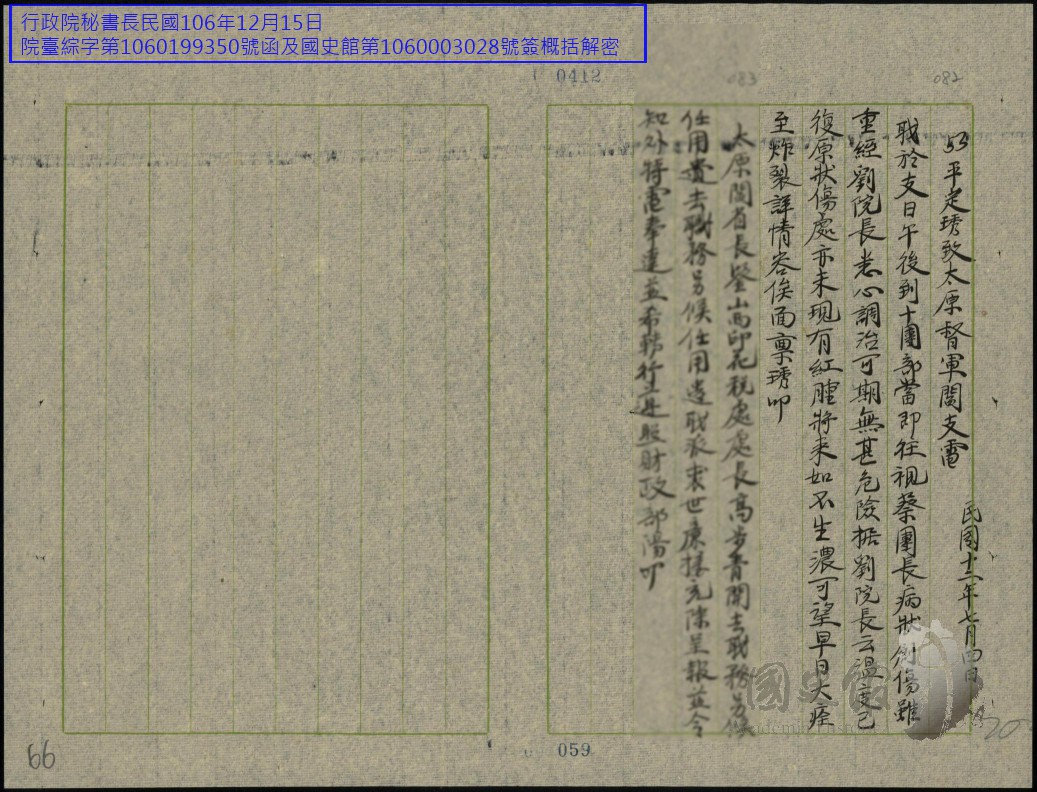 行政院秘書長民國106年12月15日
院臺綜字第1060199350號函及國史館第1060003028號簽概括解密
0412
083
082
53平定琇致太原督軍閻支電
民國十三年七月四日
職於支日午後到十團部當即往視蔡團長病狀創傷雖
重經劉院長悉心調治可期無甚危險据劉院長云溫度已
復原狀傷處亦未現有紅腫將來如不生濃可望早日大痊
至炸裂詳情容俟面禀琇叩
太原閻省長鑒山西印花稅處處長高步青開去職務另候
任用遺去職務另候任用遺職派袁世康接充除呈報並令
知外特電奉達並希轉行查照財政部陽叩
國史館
20
66
059